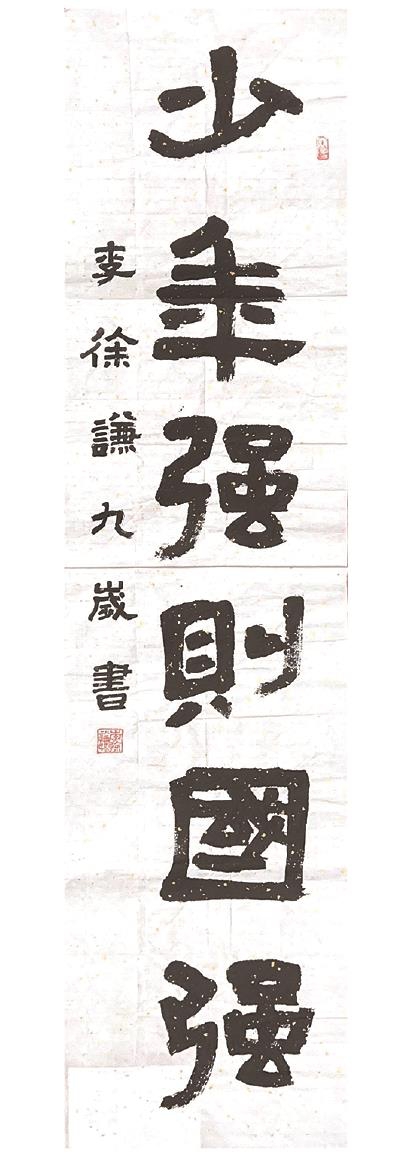 少年强則國强
李徐謙九歲書